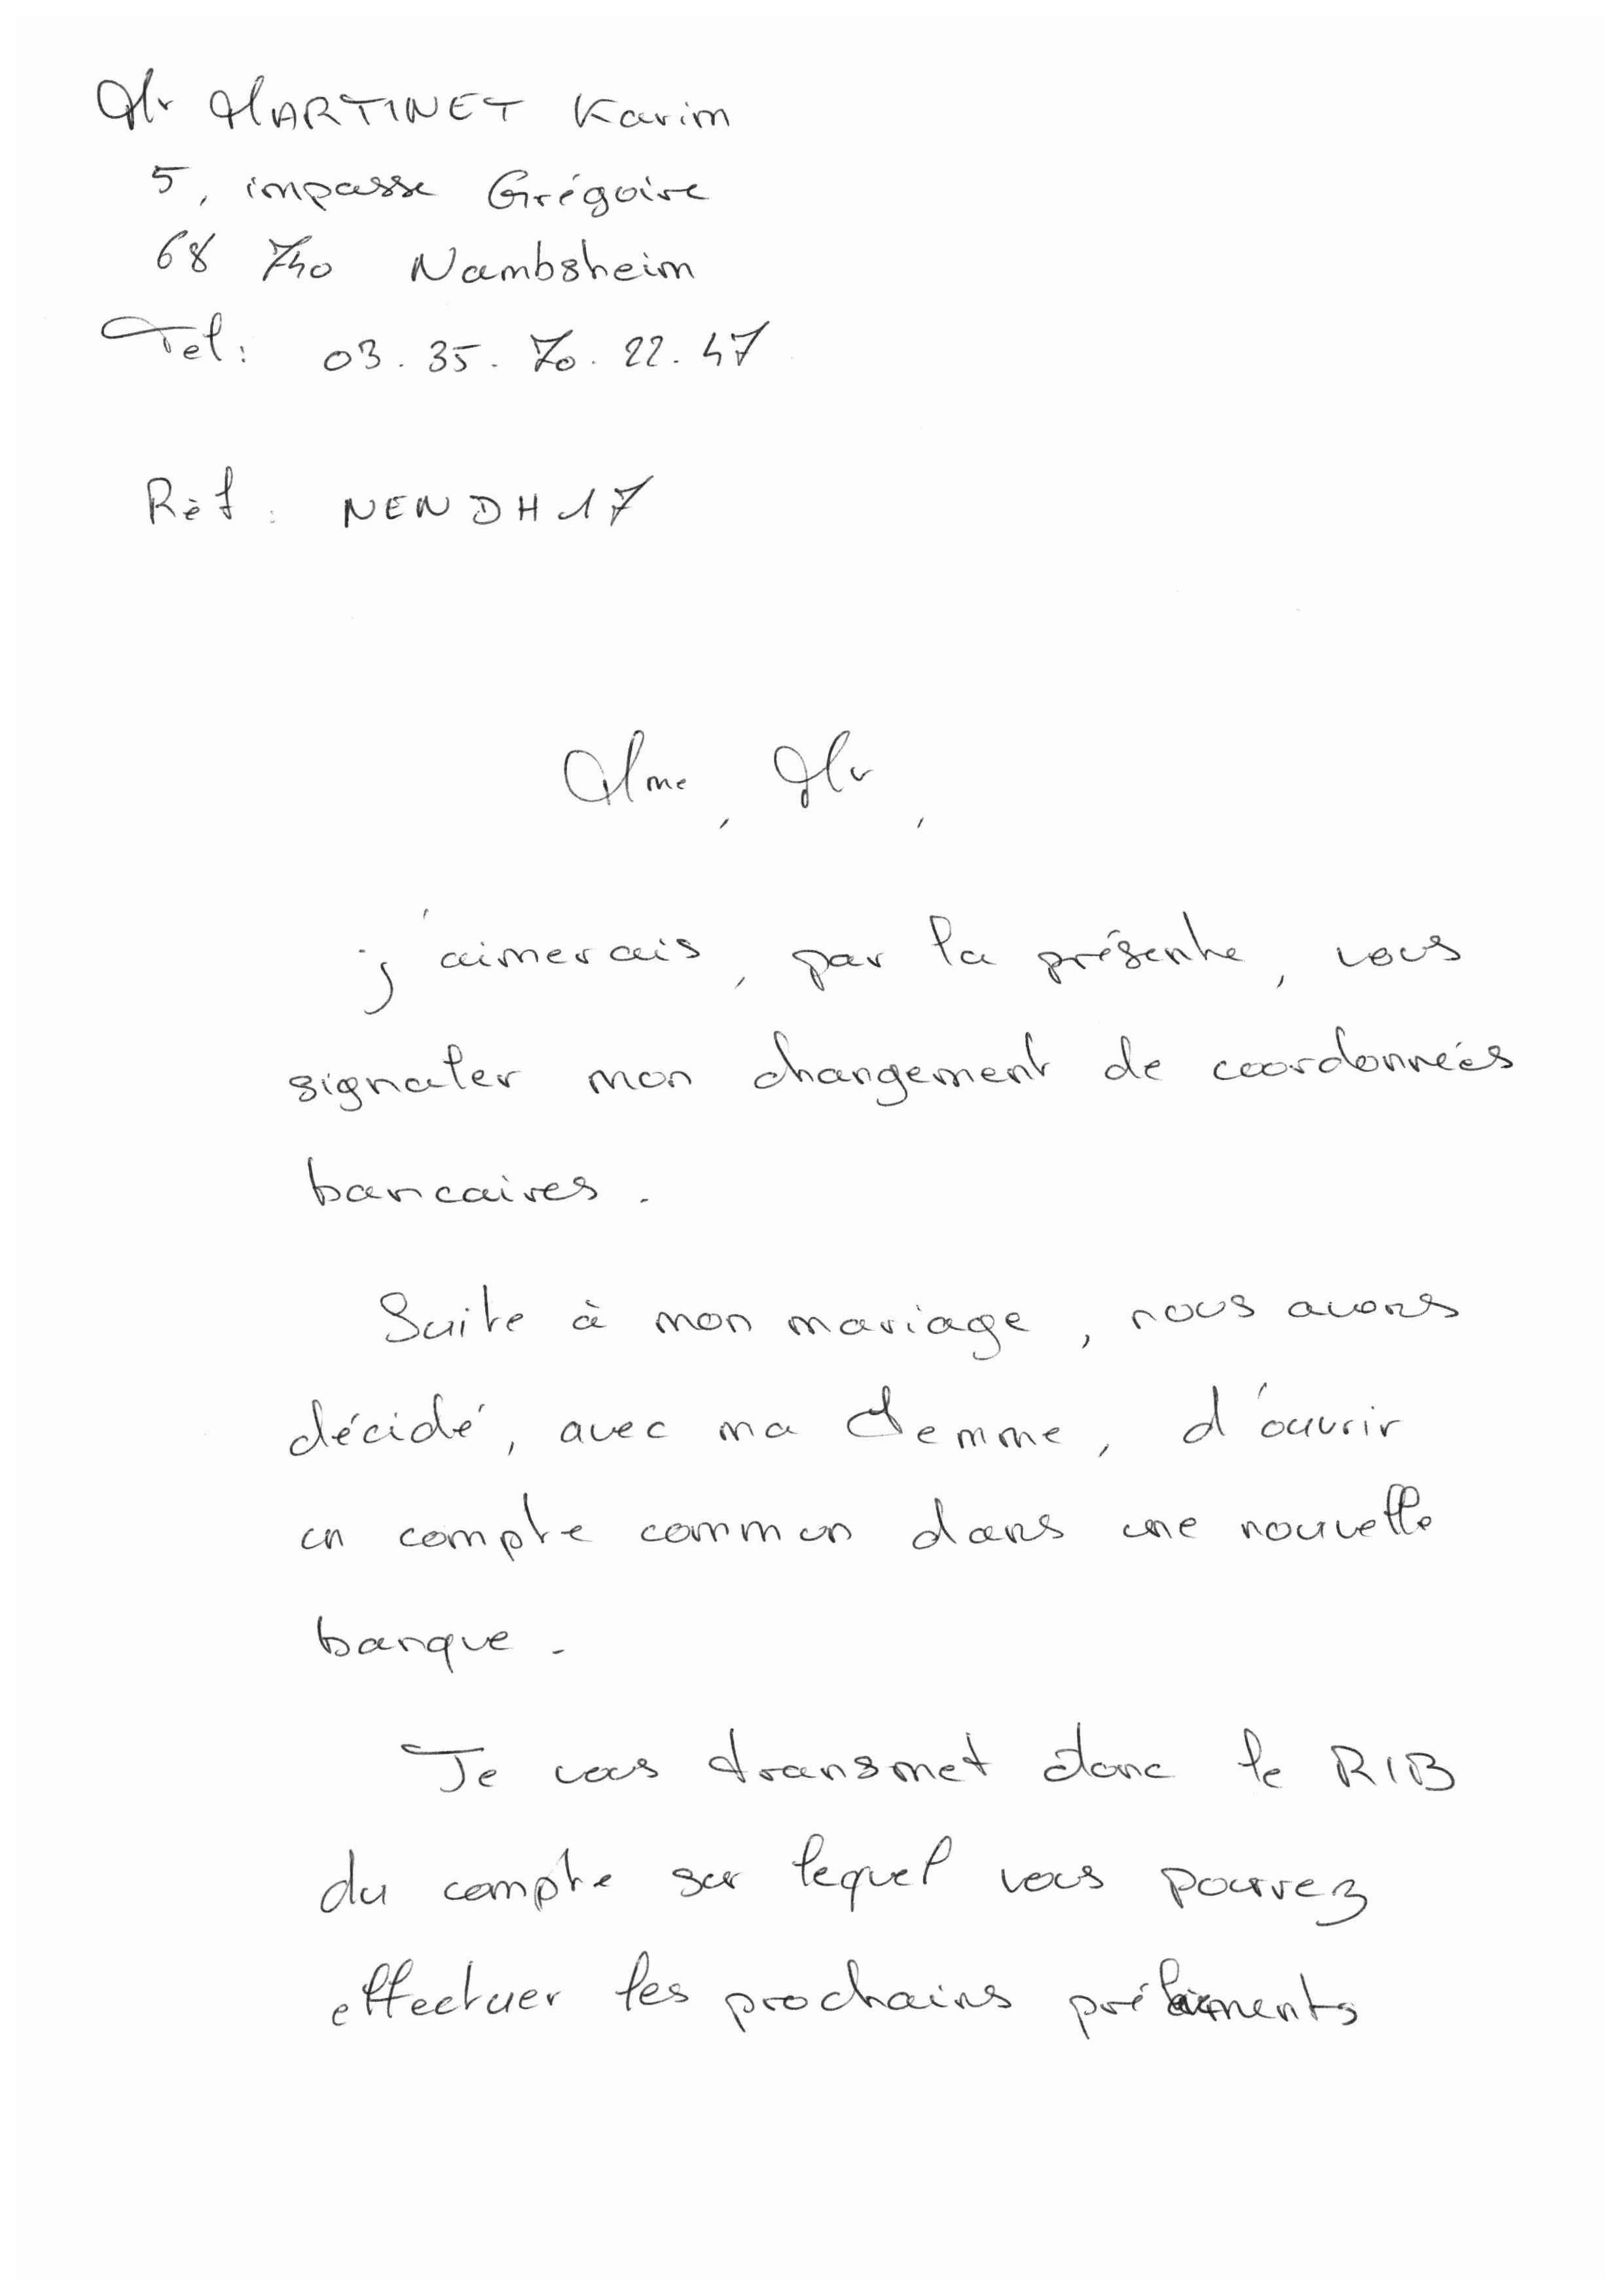 Mr MARTINET Karim
5, impasse Grégoire
68 740 Nambsheim
Tel: 03. 35. 70. 22. 47
Réf : NENDH17
Mme, Mr,
j'aimerais, par la présente, vous
signaler mon changement de coordonnées
bancaires.
Suite à mon mariage, nous avons
décidé, avec ma femme, d'ouvrir
un compte commun dans une nouvelle
banque.
Je vous transmet donc le RIB
du compte sur lequel vous pourrez
effectuer les prochains